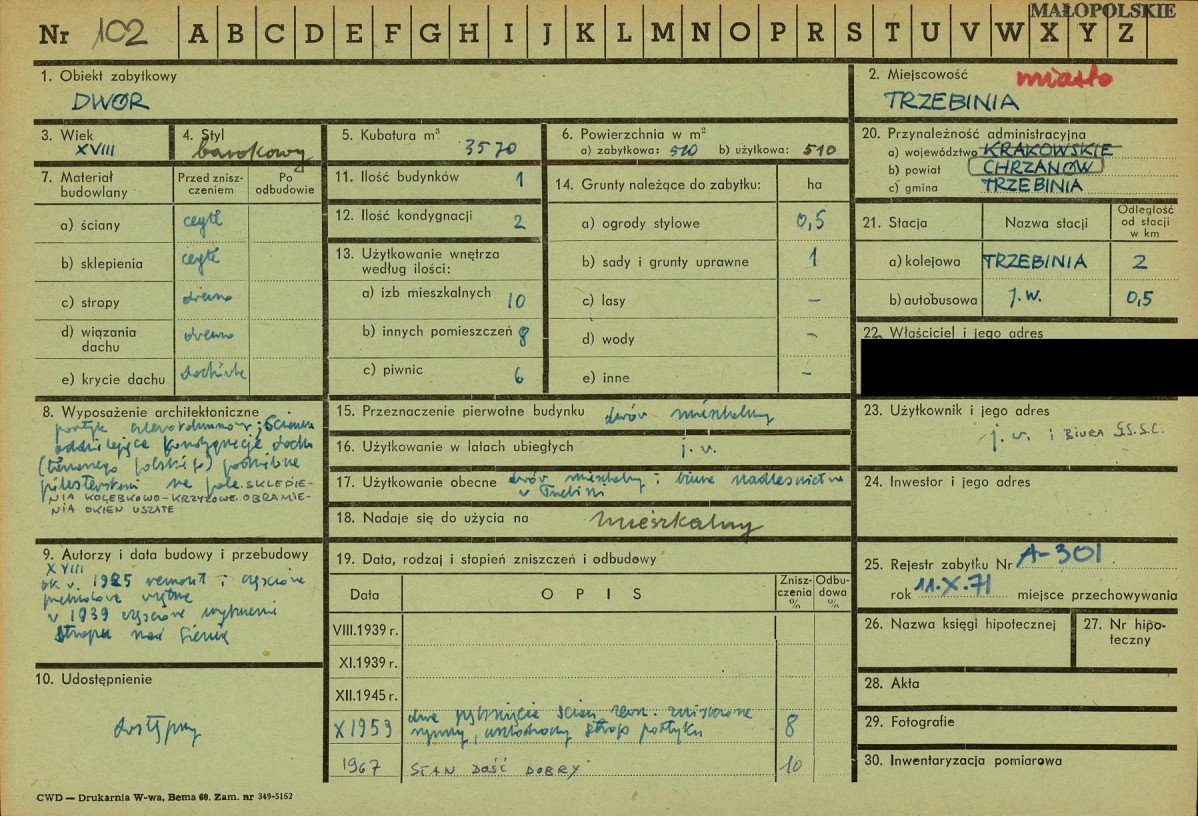 MAŁOPOLSKIE
Nr 102 A B C D E F G H I J K L M N O P R S T U V W X Y Z
1. Obiekt zabytkowy
DWÓR
2. Miejscowość miasto
TRZEBINIA
3. Wiek
XVIII
4. Styl
barokowy
5. Kubatura m³
3570
6. Powierzchnia w m²
a) zabytkowa: 510 b) użytkowa: 510
20. Przynależność administracyjna
a) województwo KRAKOWSKIE
b) powiat CHRZANÓW
c) gmina TRZEBINIA
7. Materiał budowlany
Przed zniszczeniem
Po odbudowie
a) ściany cegła
b) sklepienia cegła
c) stropy drewno
d) wiązania dachu drewno
e) krycie dachu dachówka
11. Ilość budynków 1
12. Ilość kondygnacji 2
13. Użytkowanie wnętrza
według ilości:
a) izb mieszkalnych 10
b) innych pomieszczeń 8
c) piwnic 6
14. Grunty należące do zabytku: ha
a) ogrody stylowe 0,5
b) sady i grunty uprawne 1
c) lasy –
d) wody –
e) inne –
21. Stacja
Nazwa stacji
Odległość
od stacji
w km
a) kolejowa TRZEBINIA 2
b) autobusowa j.w. 0,5
22. Właściciel i jego adres
8. Wyposażenie architektoniczne
portyk czterokolumnowy; ściana
oddzielające kondygnacje dachu
(łamanego polskiego) podzielone
pilastrami na pola. SKLEPIE-
NIA KOLEBKOWO-KRZYŻOWE. OBRAMIE-
NIA OKIEN USZATE
15. Przeznaczenie pierwotne budynku dwór mieszkalny
16. Użytkowanie w latach ubiegłych j. w.
17. Użytkowanie obecne dwór mieszkalny i biura nadleśnictwa
w Trzebini
18. Nadaje się do użycia na mieszkalny
23. Użytkownik i jego adres
j. w. i BIURA
24. Inwestor i jego adres
9. Autorzy i data budowy i przebudowy
XVIII
ok. r. 1925 remont i częściowe
przeróbki wnętrz
w 1939 częściowe
stropu nad sienią
19. Data, rodzaj i stopień zniszczeń i odbudowy
Data
OPIS
Zniszczenia %
Odbudowa %
VIII.1939 r.
XI.1939 r.
XII.1945 r.
X 1959 dwa pęknięcie ścian zewn. zniszczone
rynny, uszkodzony strop portyku 8
1967 STAN DOŚĆ DOBRY 10
25. Rejestr zabytku Nr A-301
rok 11.X.71 miejsce przechowywania
26. Nazwa księgi hipotecznej
27. Nr hipoteczny
28. Akta
29. Fotografie
30. Inwentaryzacja pomiarowa
10. Udostępnienie
dostępny
CWD — Drukarnia W-wa, Bema 60. Zam. nr 349-5162